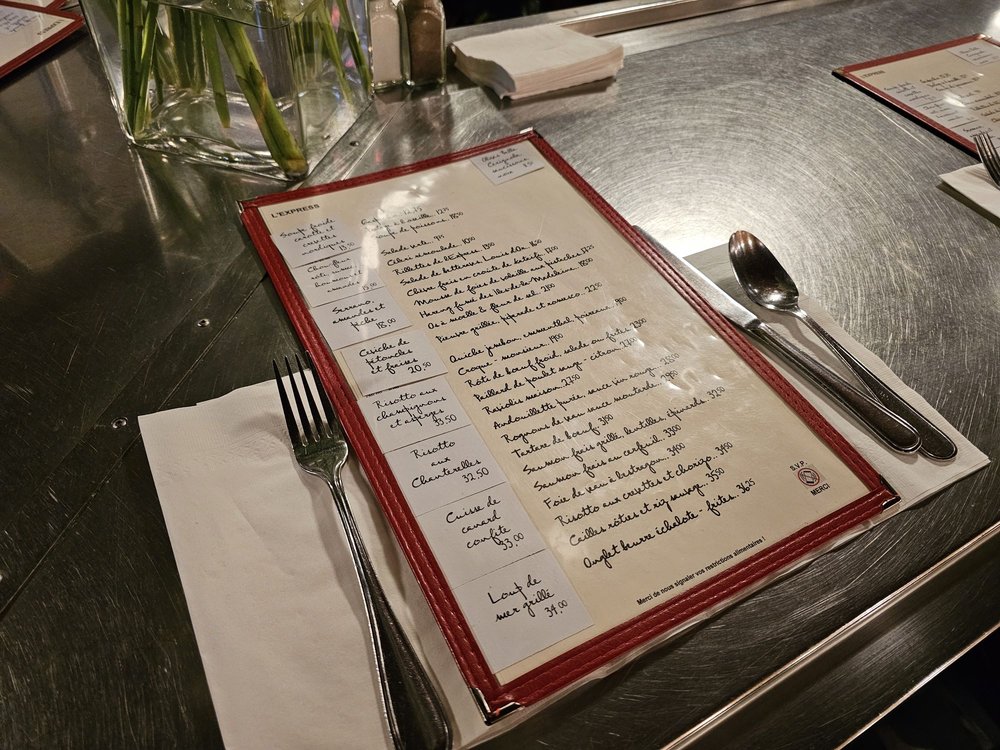 L'EXPRESS
Soupe froide
carotte et
crevettes
nordiques
13,50
Chou-fleur
rôti, sauce
homous et
amandes
15,00
Serrano,
amandes et
pêche
18,00
Ceviche de
pétoncles
et fraises
20,50
Risotto aux
champignons
et asperges
33,50
Risotto
aux
Chanterelles
32,50
Cuisse de
canard
confite
33,00
Loup de
mer grillé
34,00
à l'oseille. 12.75
Soupe de poissons. 18.50
Salade verte. 9.75
Céleri rémoulade. 10.00
Rillettes de l'Express. 13.50
Salade de betteraves, Louis d'Or. 16.50
Chèvre frais en croûte de 17.00
Mousse de foies de volaille aux pistaches. 17.25
Hareng fumé des Iles de la Madeleine. 18.50
Os à moelle & fleur de sel. 21.00
Pieuvre grillée, piperade et romesco. 22.50
Quiche jambon, emmenthal, poireaux.
Croque-monsieur. 19.00
Rôti de boeuf froid, salade ou frites. 25.00
Paillard de poulet - citron. 27.00
Raviolis maison. 27.50
Andouillette purée, sauce vin rouge.
Rognons de veau sauce moutarde.
Tartare de boeuf. 31.50
Saumon frais grillé, lentilles, épinards. 32.50
Saumon frais au cerfeuil. 33.00
Foie de veau à l'estragon. 34.00
Risotto aux crevettes et chorizo. 34.50
Cailles rôties et riz sauvage. 35.50
Onglet beurre échalote - frites. 36.25
S.V.P.
MERCI
Merci de nous signaler vos restrictions alimentaires !
L'EXPRESS